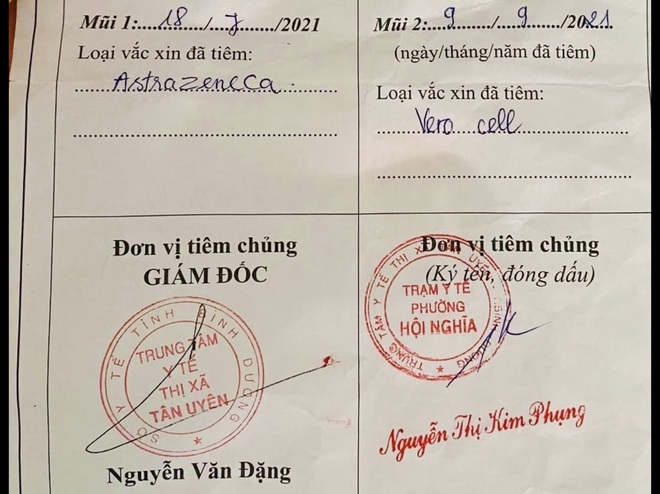 Mũi 1: 18 / 7 /2021
Loại vắc xin đã tiêm:
Astrazeneca
Mũi 2: 9 / 9 /2021
(ngày/tháng/năm đã tiêm)
Loại vắc xin đã tiêm:
Vero cell
Đơn vị tiêm chủng
GIÁM ĐỐC
SỞ Y TẾ TỈNH BÌNH DƯƠNG
TRUNG TÂM
Y TẾ
THỊ XÃ
TÂN UYÊN
Nguyễn Văn Đặng
Đơn vị tiêm chủng
(Ký tên, đóng dấu)
TRUNG TÂM Y TẾ THỊ XÃ TÂN UYÊN - BÌNH DƯƠNG
TRẠM Y TẾ
PHƯỜNG
HỘI NGHĨA
Nguyễn Thị Kim Phụng